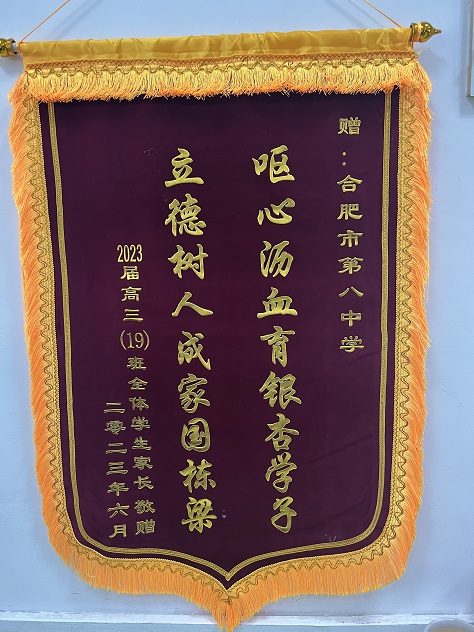 赠：合肥市第八中学
呕心沥血育银杏学子
立德树人成家国栋梁
2023届高三(19)班全体学生家长敬赠
二零二三年六月